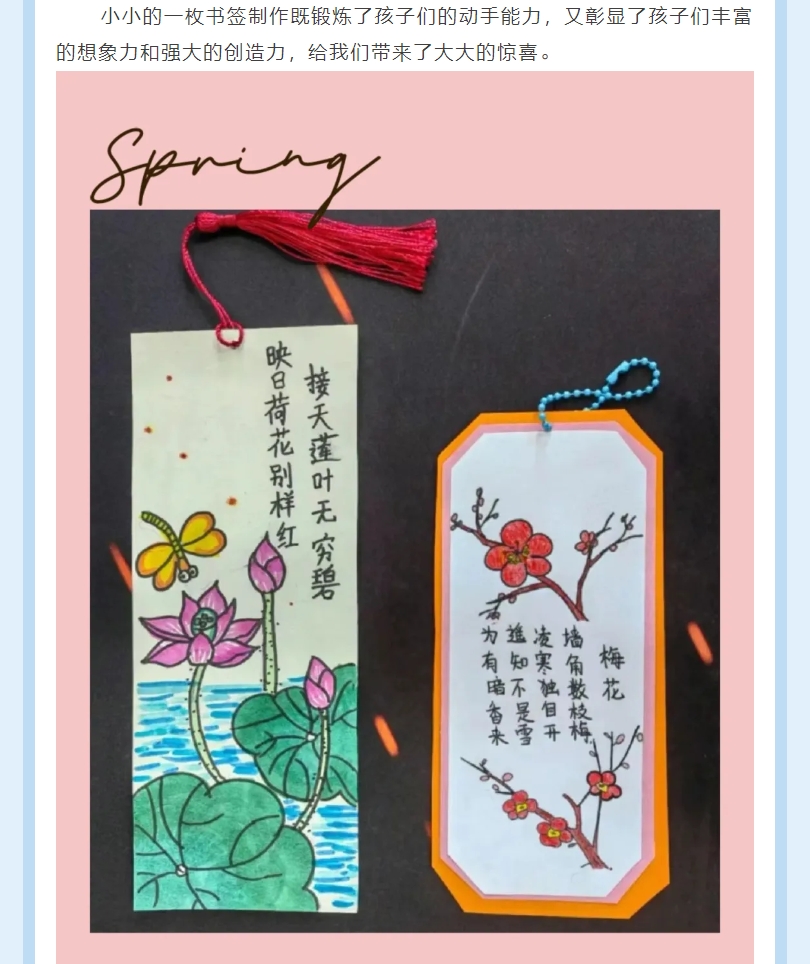 小小的一枚书签制作既锻炼了孩子们的动手能力，又彰显了孩子们丰富
的想象力和强大的创造力，给我们带来了大大的惊喜。
Spring
接天莲叶无穷碧
映日荷花别样红
梅花
墙角数枝梅
凌寒独自开
遥知不是雪
为有暗香来